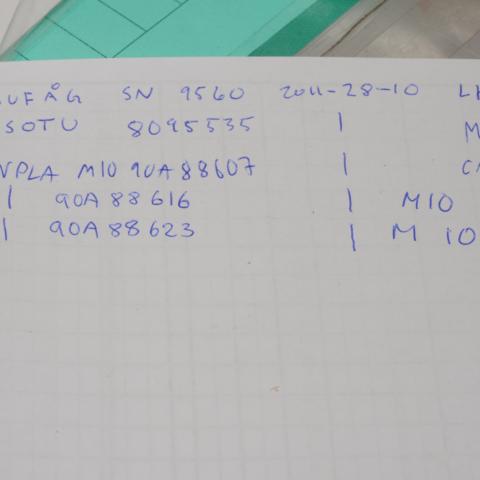 UFÅG SN 9560 2011-28-10 L
SOTU 8095535 | M
VPLA M10 90A88607 | C
| 90A88616 | M10
| 90A88623 | M 10